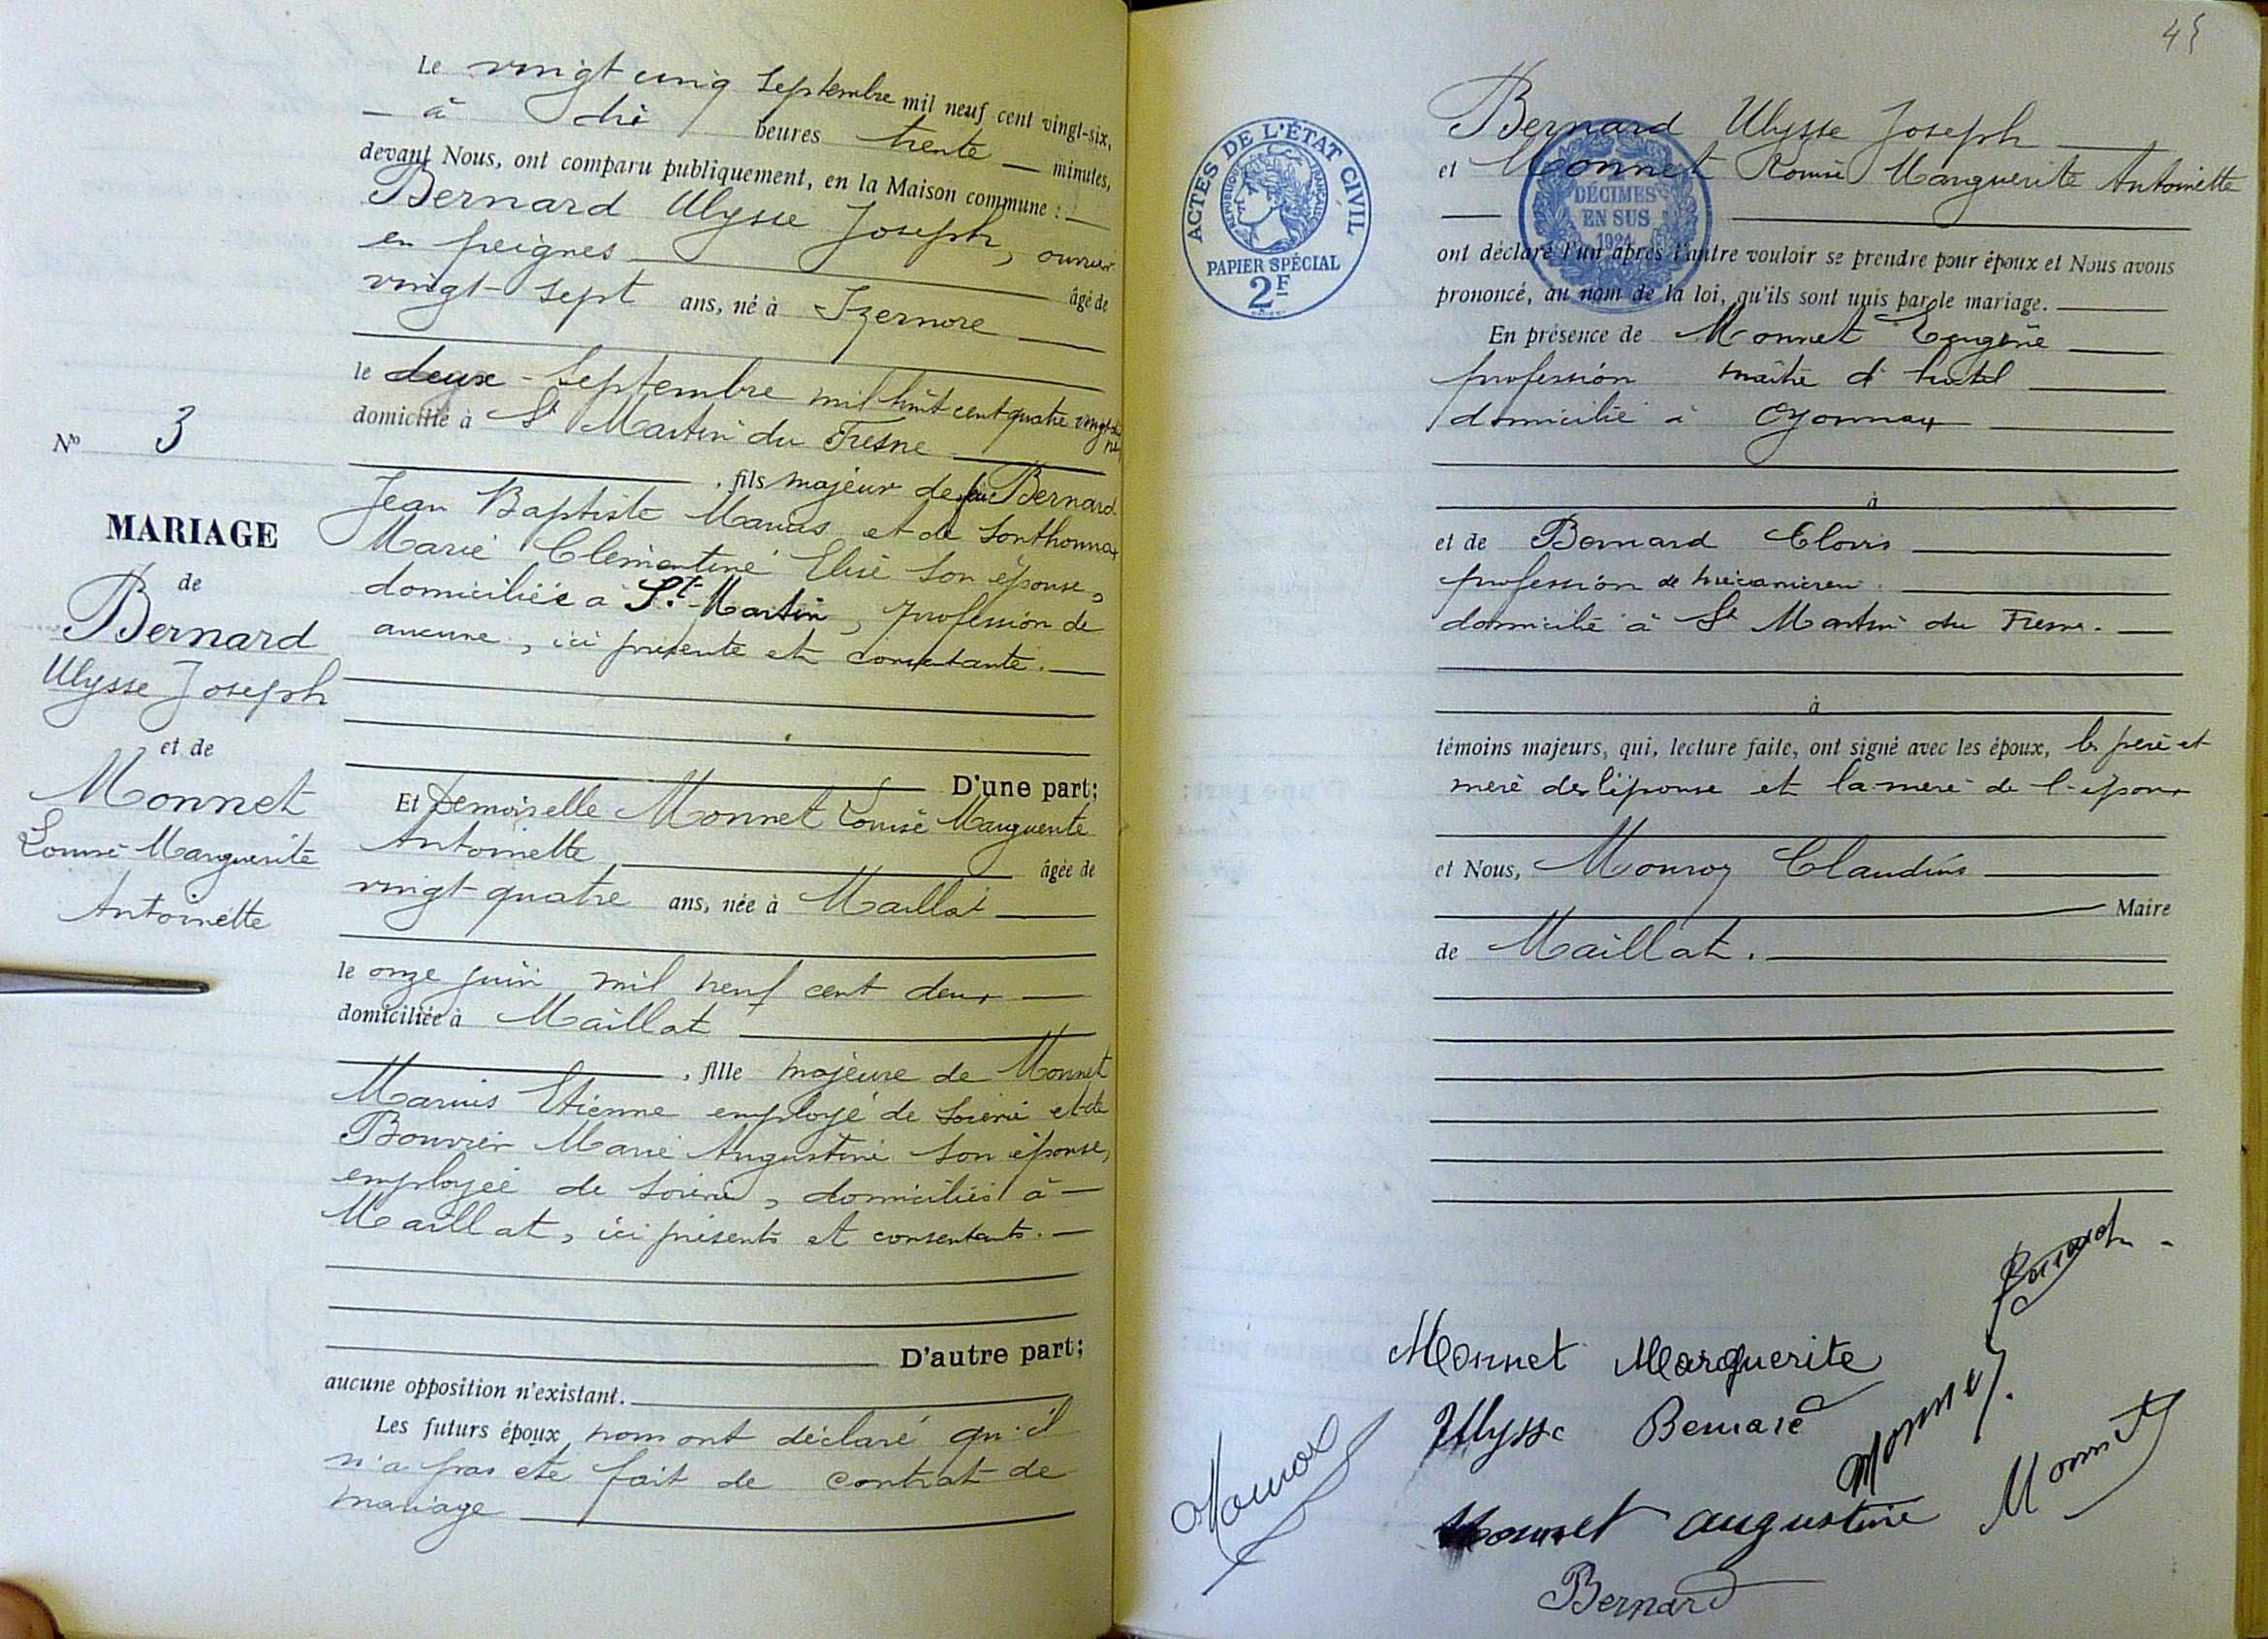 Le vingt cinq Septembre mil neuf cent vingt-six,
à dix heures trente minutes,
devant Nous, ont comparu publiquement, en la Maison commune :
Bernard Ulysse Joseph, ouvrier
en peignes âgé de
vingt-sept ans, né à Izernore
le deux Septembre mil huit cent quatre vingt dix neuf
domicilié à St Martin du Fresne
, fils majeur de feu Bernard
Jean Baptiste Marius et de Sonthonnax
Marie Clémentine Elise son épouse,
domiciliée à St-Martin, profession de
aucune, ici présente et consentante.
D'une part;
Et Demoiselle Monnet Louise Marguerite
Antoinette âgée de
vingt-quatre ans, née à Maillat
le onze juin mil neuf cent deux
domiciliée à Maillat
, fille majeure de Monnet
Marius Etienne employé de soierie et de
Bouvier Marie Augustine son épouse,
employée de soierie, domiciliés à
Maillat, ici présents et consentants.
D'autre part;
aucune opposition n'existant.
Les futurs époux nous ont déclaré qu'il
n'a pas été fait de contrat de
mariage
No 3
MARIAGE
de
Bernard
Ulysse Joseph
et de
Monnet
Louise Marguerite
Antoinette
45
ACTES DE L'ÉTAT CIVIL
RÉPUBLIQUE FRANÇAISE
PAPIER SPÉCIAL
2F
DÉCIMES
EN SUS
1924
Bernard Ulysse Joseph
et Monnet Louise Marguerite Antoinette
ont déclaré l'un après l'autre vouloir se prendre pour époux et Nous avons
prononcé, au nom de la loi, qu'ils sont unis par le mariage.
En présence de Monnet Eugène
profession maître d'hôtel
domicilié à Oyonnax
à
et de Bernard Clovis
profession de mécanicien.
domicilié à St Martin du Fresne.
à
témoins majeurs, qui, lecture faite, ont signé avec les époux, les père et
mère de l'épouse et la mère de l'époux
et Nous, Claudius
Maire
de Maillat.
Monnet Marguerite
Ulysse Bernard
Monnet
Monnet
Monnet augustine
Bernard